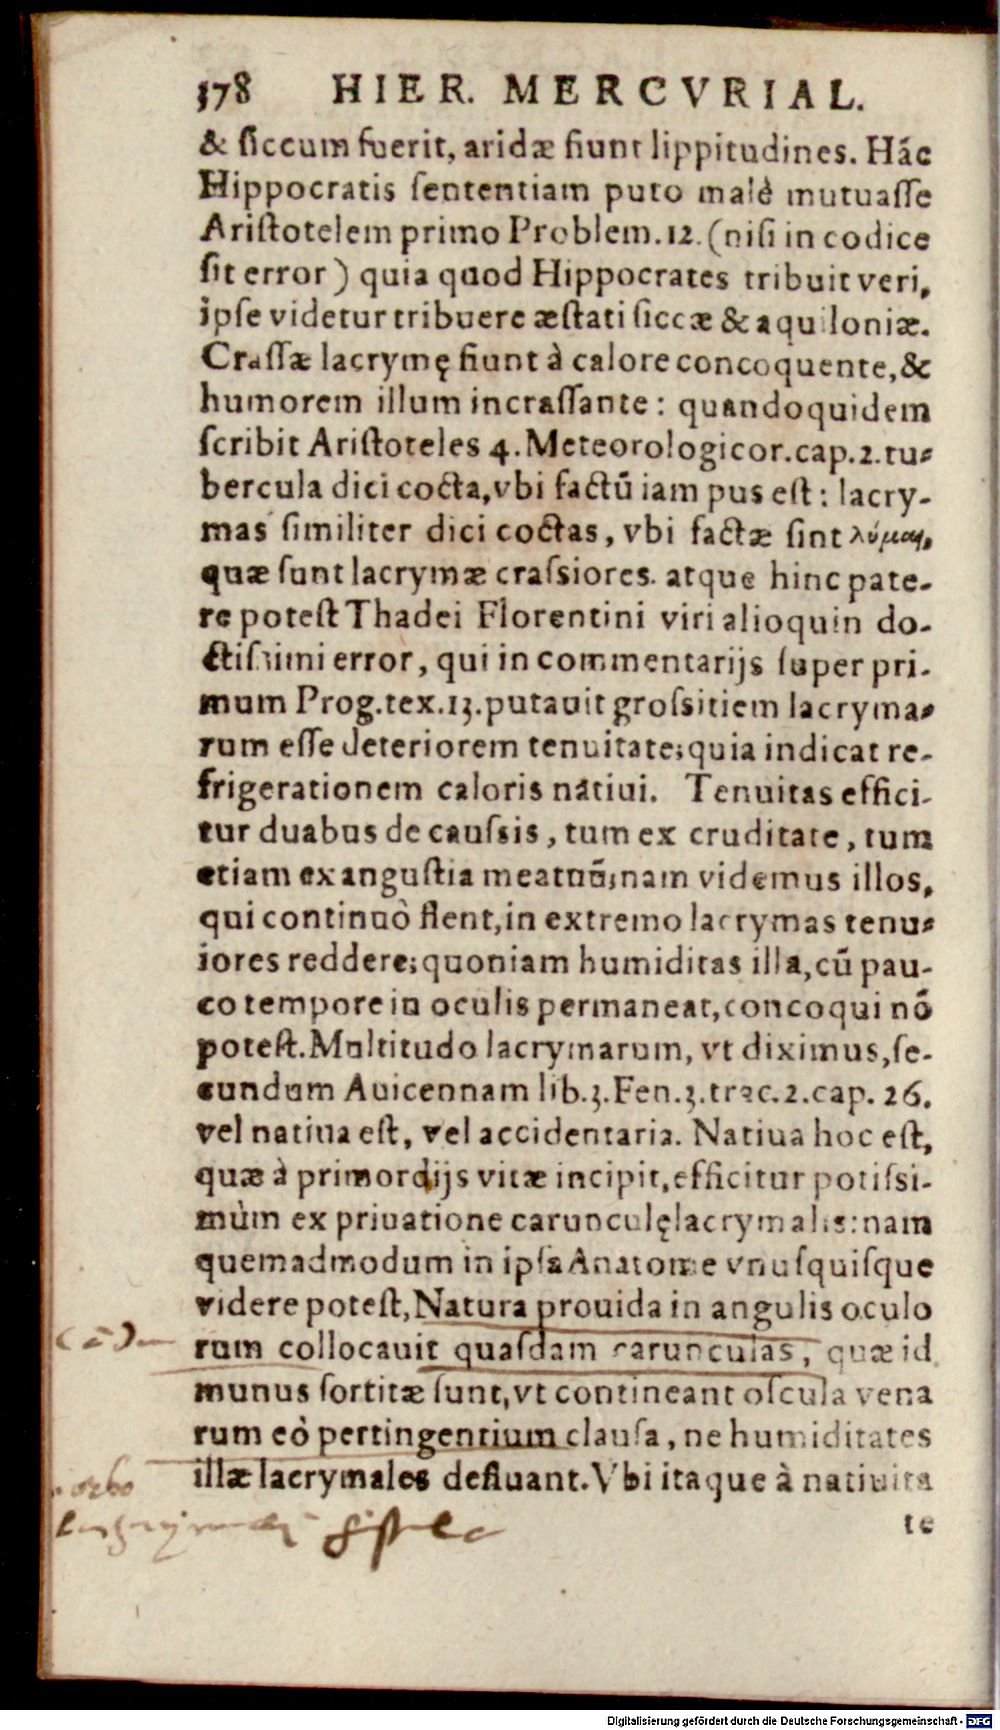 378 HIER. MERCVRIAL.
& ſiccum fuerit, aridæ fiunt lippitudines. Hác
Hippocratis ſententiam puto malè mutuaſſe
Ariſtotelem primo Problem.12.(niſi in codice
ſit error) quia quod Hippocrates tribuit veri,
ipſe videtur tribuere æſtati ſiccæ & aquiloniæ.
Craſſæ lacrymę fiunt à calore concoquente,&
humorem illum incraſſante: quandoquidem
ſcribit Ariſtoteles 4. Meteorologicor.cap.2.tu-
bercula dici cocta,vbi factū iam pus eſt: lacry-
mas ſimiliter dici coctas, vbi factæ ſint λύμαι,
quæ ſunt lacrymæ craſsiores. atque hinc pate-
re poteſt Thadei Florentini viri alioquin do-
ctiſsimi error, qui in commentarijs ſuper pri-
mum Prog.tex.13.putauit groſsitiem lacryma-
rum eſſe deteriorem tenuitate;quia indicat re-
frigerationem caloris natiui. Tenuitas effici-
tur duabus de cauſsis, tum ex cruditate, tum
etiam ex anguſtia meatuū;nam videmus illos,
qui continuò flent,in extremo lacrymas tenu-
iores reddere;quoniam humiditas illa,cū pau-
co tempore in oculis permaneat,concoqui nō
poteſt.Multitudo lacrymarum, vt diximus,ſe-
cundum Auicennam lib.3.Fen.3.trac.2.cap. 26.
vel natiua eſt, vel accidentaria. Natiua hoc eſt,
quæ à primordijs vitæ incipit,efficitur potiſsi-
mùm ex priuatione carunculę lacrymalis:nam
quemadmodum in ipſa Anatome vnuſquiſque
videre poteſt,Natura prouida in angulis oculo
rum collocauit quaſdam carunculas, quæ id
munus ſortitæ ſunt,vt contineant oſcula vena
rum eò pertingentium clauſa, ne humiditates
illæ lacrymales defluant.Vbi itaque à natiuita
te
Digitalisierung gefördert durch die Deutsche Forschungsgemeinschaft - DFG